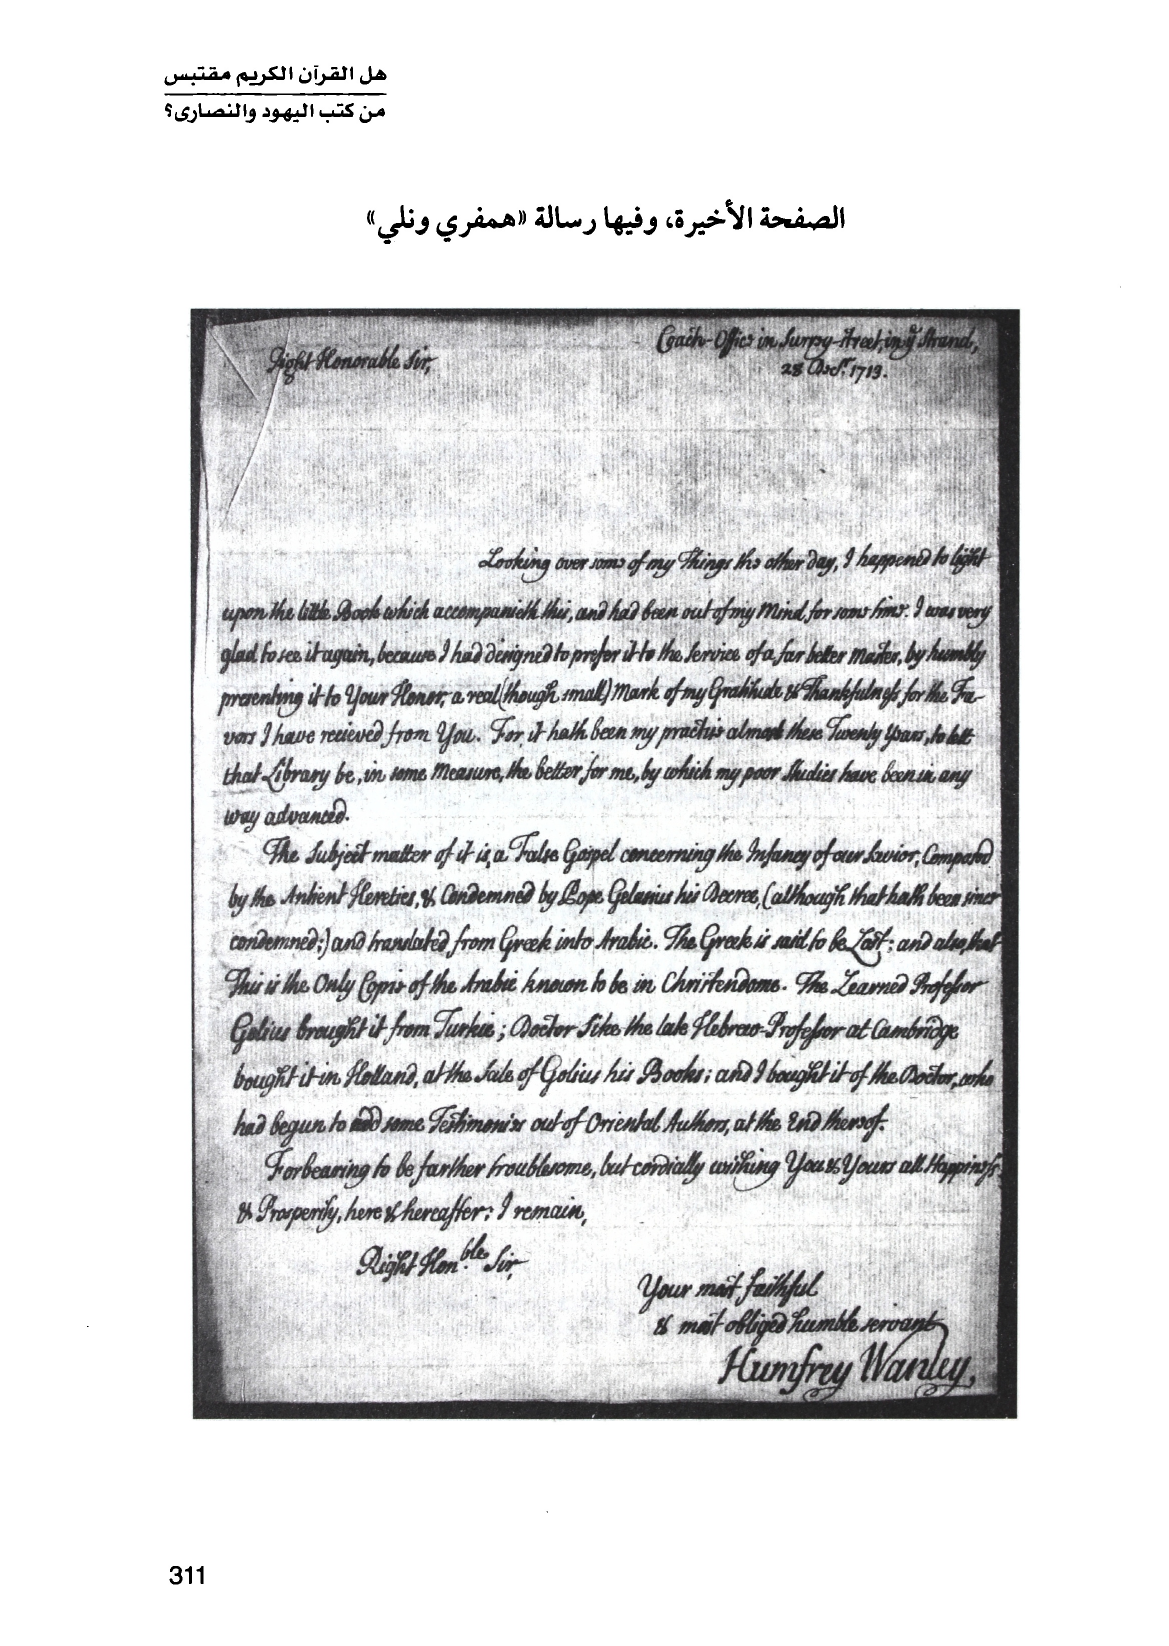 هل القرآن الكريم مقتبس
من كتب اليهود والنصارى؟
الصفحة الأخيرة، وفيها رسالة «همفري ونلي»
Coach-Office in Surrey-street, in ye Strand,
28 Octr. 1713.
Right Honorable Sir,
Looking over some of my Things the other day, I happened to light
upon the little Book which accompanieth this, and had been out of my Mind for some time. I was very
glad to see it again, because I had designed to prefer it to the Service of a far better Master, by humbly
presenting it to Your Honor, a real (though small) Mark of my Gratitude & Thankfulness for the Fa-
vors I have recieved from You. For it hath been my practise almost these Twenty Years, to lett
that Library be, in some Measure, the better for me, by which my poor Studies have been in any
way advanced.
The Subject matter of it is, a False Gospel concerning the Infancy of our Savior, Composed
by the Antient Heretics, & Condemned by Pope Gelasius his Decree, (although that hath been since
condemned;) and translated from Greek into Arabic. The Greek is said to be Lost; and also, that
This is the Only Copie of the Arabic known to be in Christendome. The Learned Professor
Golius brought it from Turkie; Doctor Sike the late Hebrew-Professor at Cambridge
bought it in Holland, at the Sale of Golius his Books; and I bought it of the Doctor, who
had begun to add some Testimonies out of Oriental Authors, at the End thereof.
Forbearing to be farther troublesome, but cordially wishing You & Yours all Happiness
& Prosperity, here & hereafter; I remain,
Right Honble. Sir,
Your most faithful
& most obliged humble servant
Humfrey Wanley,
311